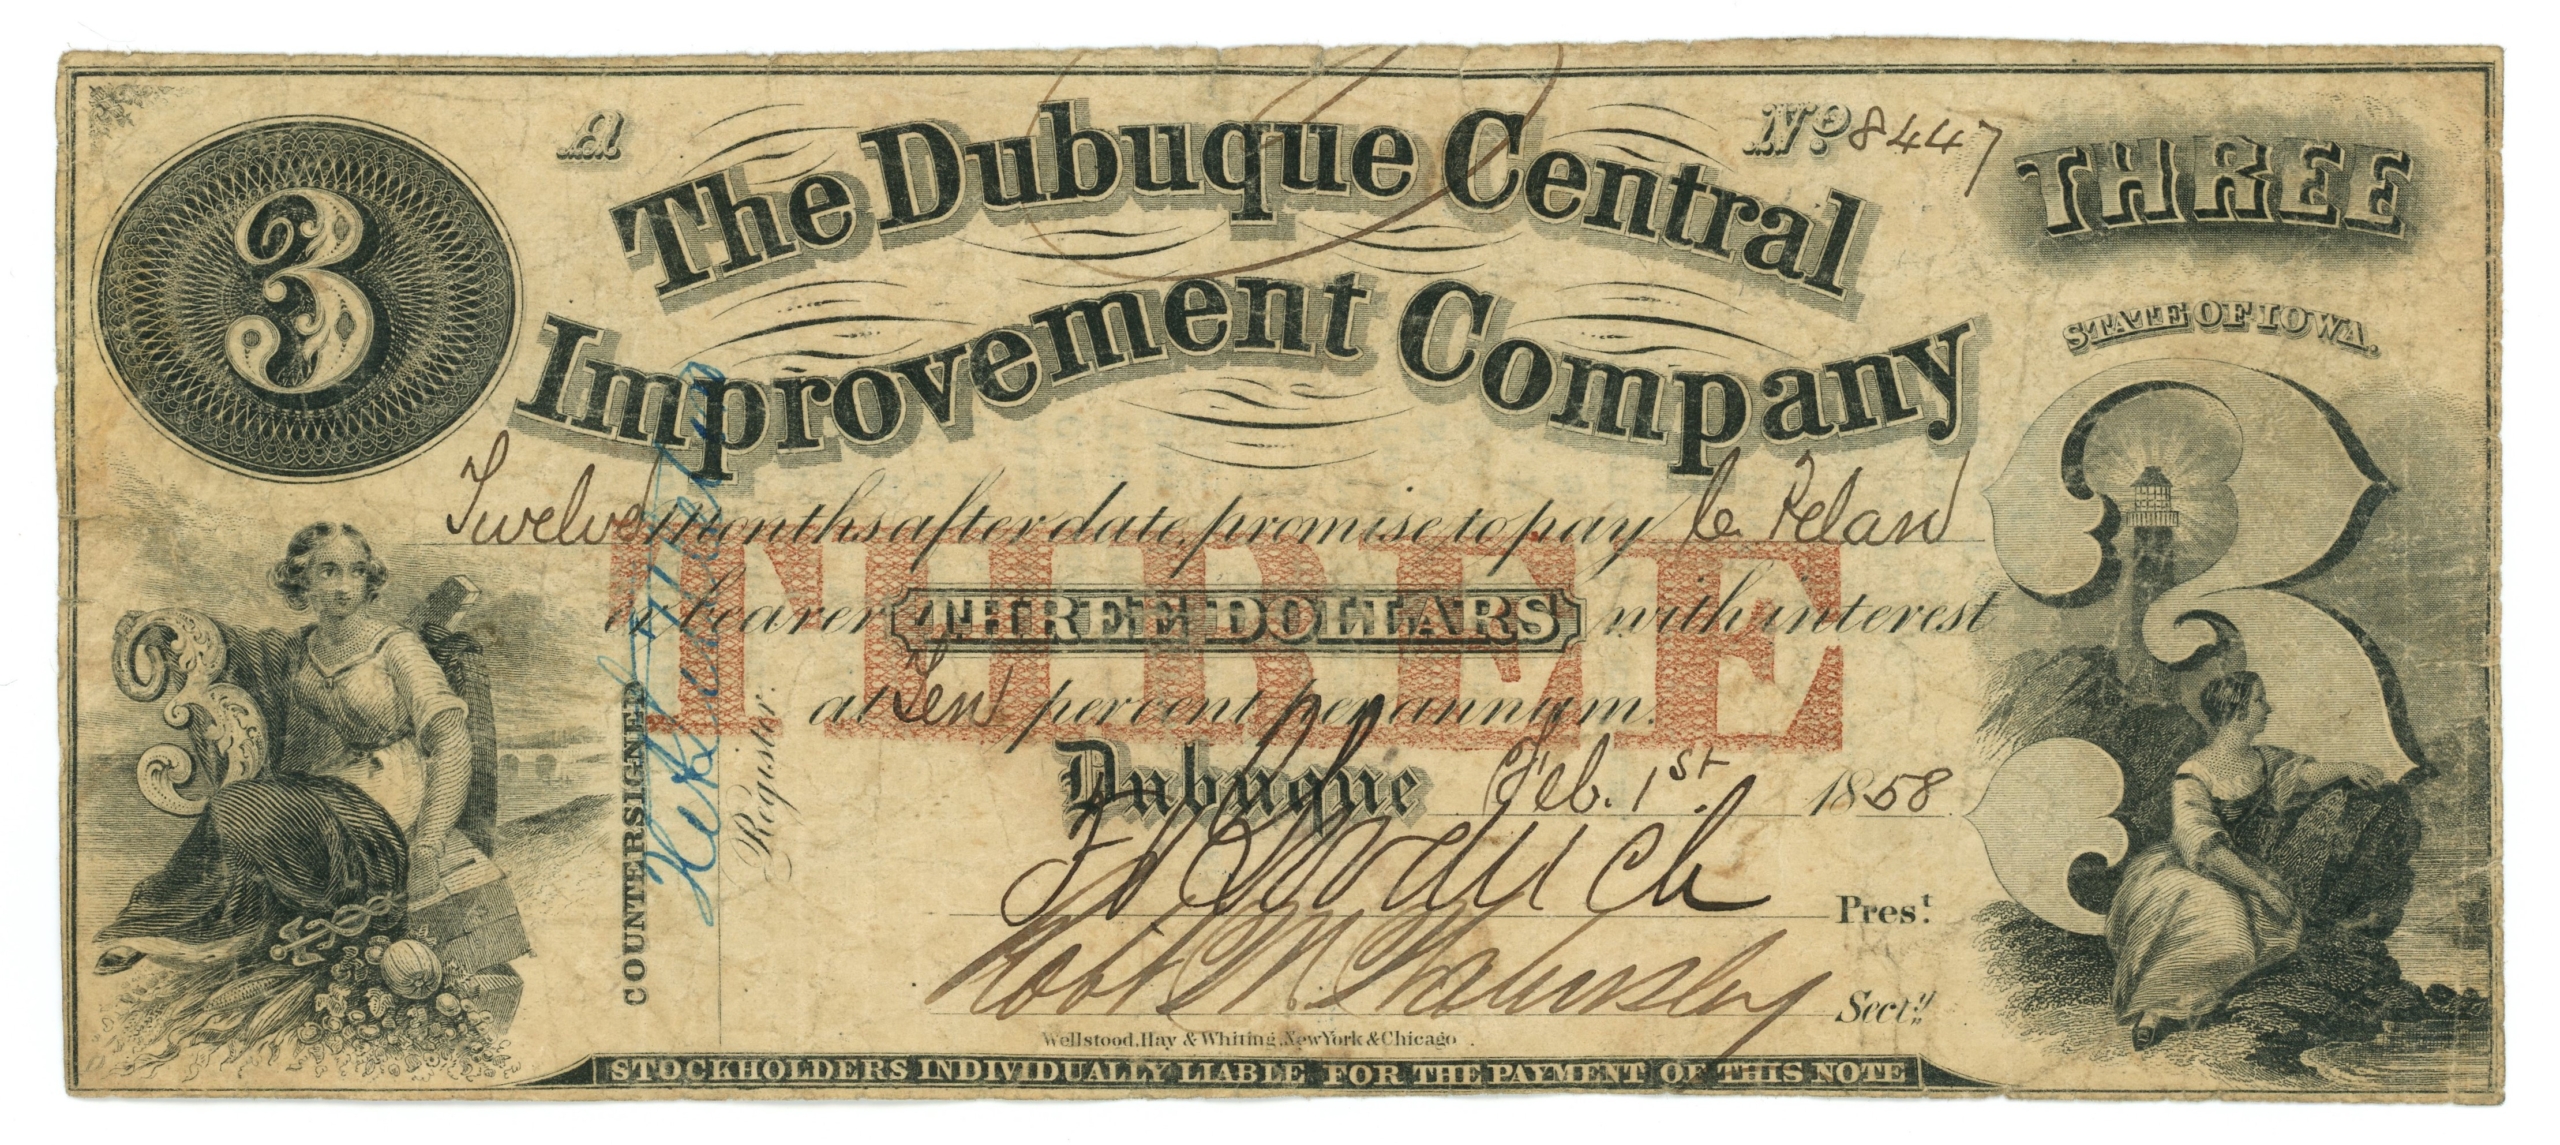 3
A
The Dubuque Central
Nº 8447
THREE
Improvement Company
STATE OF IOWA.
3
Twelve months after date, promise to pay
to bearer THREE DOLLARS with interest
THREE
at Ten per cent per annum.
Dubuque Feb. 1st 1858
COUNTERSIGNED
Register
Prest
Robt
Secty
Wellstood, Hay & Whiting, New York & Chicago.
STOCKHOLDERS INDIVIDUALLY LIABLE FOR THE PAYMENT OF THIS NOTE